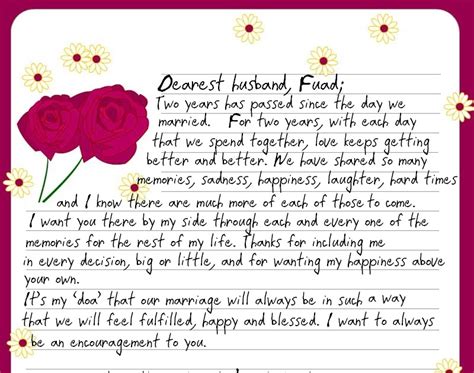 Dearest husband, Fuad;
Two years has passed since the day we
married. For two years, with each day
that we spend together, love keeps getting
better and better. We have shared so many
memories, sadness, happiness, laughter, hard times
and I know there are much more of each of those to come.
I want you there by my side through each and every one of the
memories for the rest of my life. Thanks for including me
in every decision, big or little, and for wanting my happiness above
your own.
It's my 'doa' that our marriage will always be in such a way
that we will feel fulfilled, happy and blessed. I want to always
be an encouragement to you.